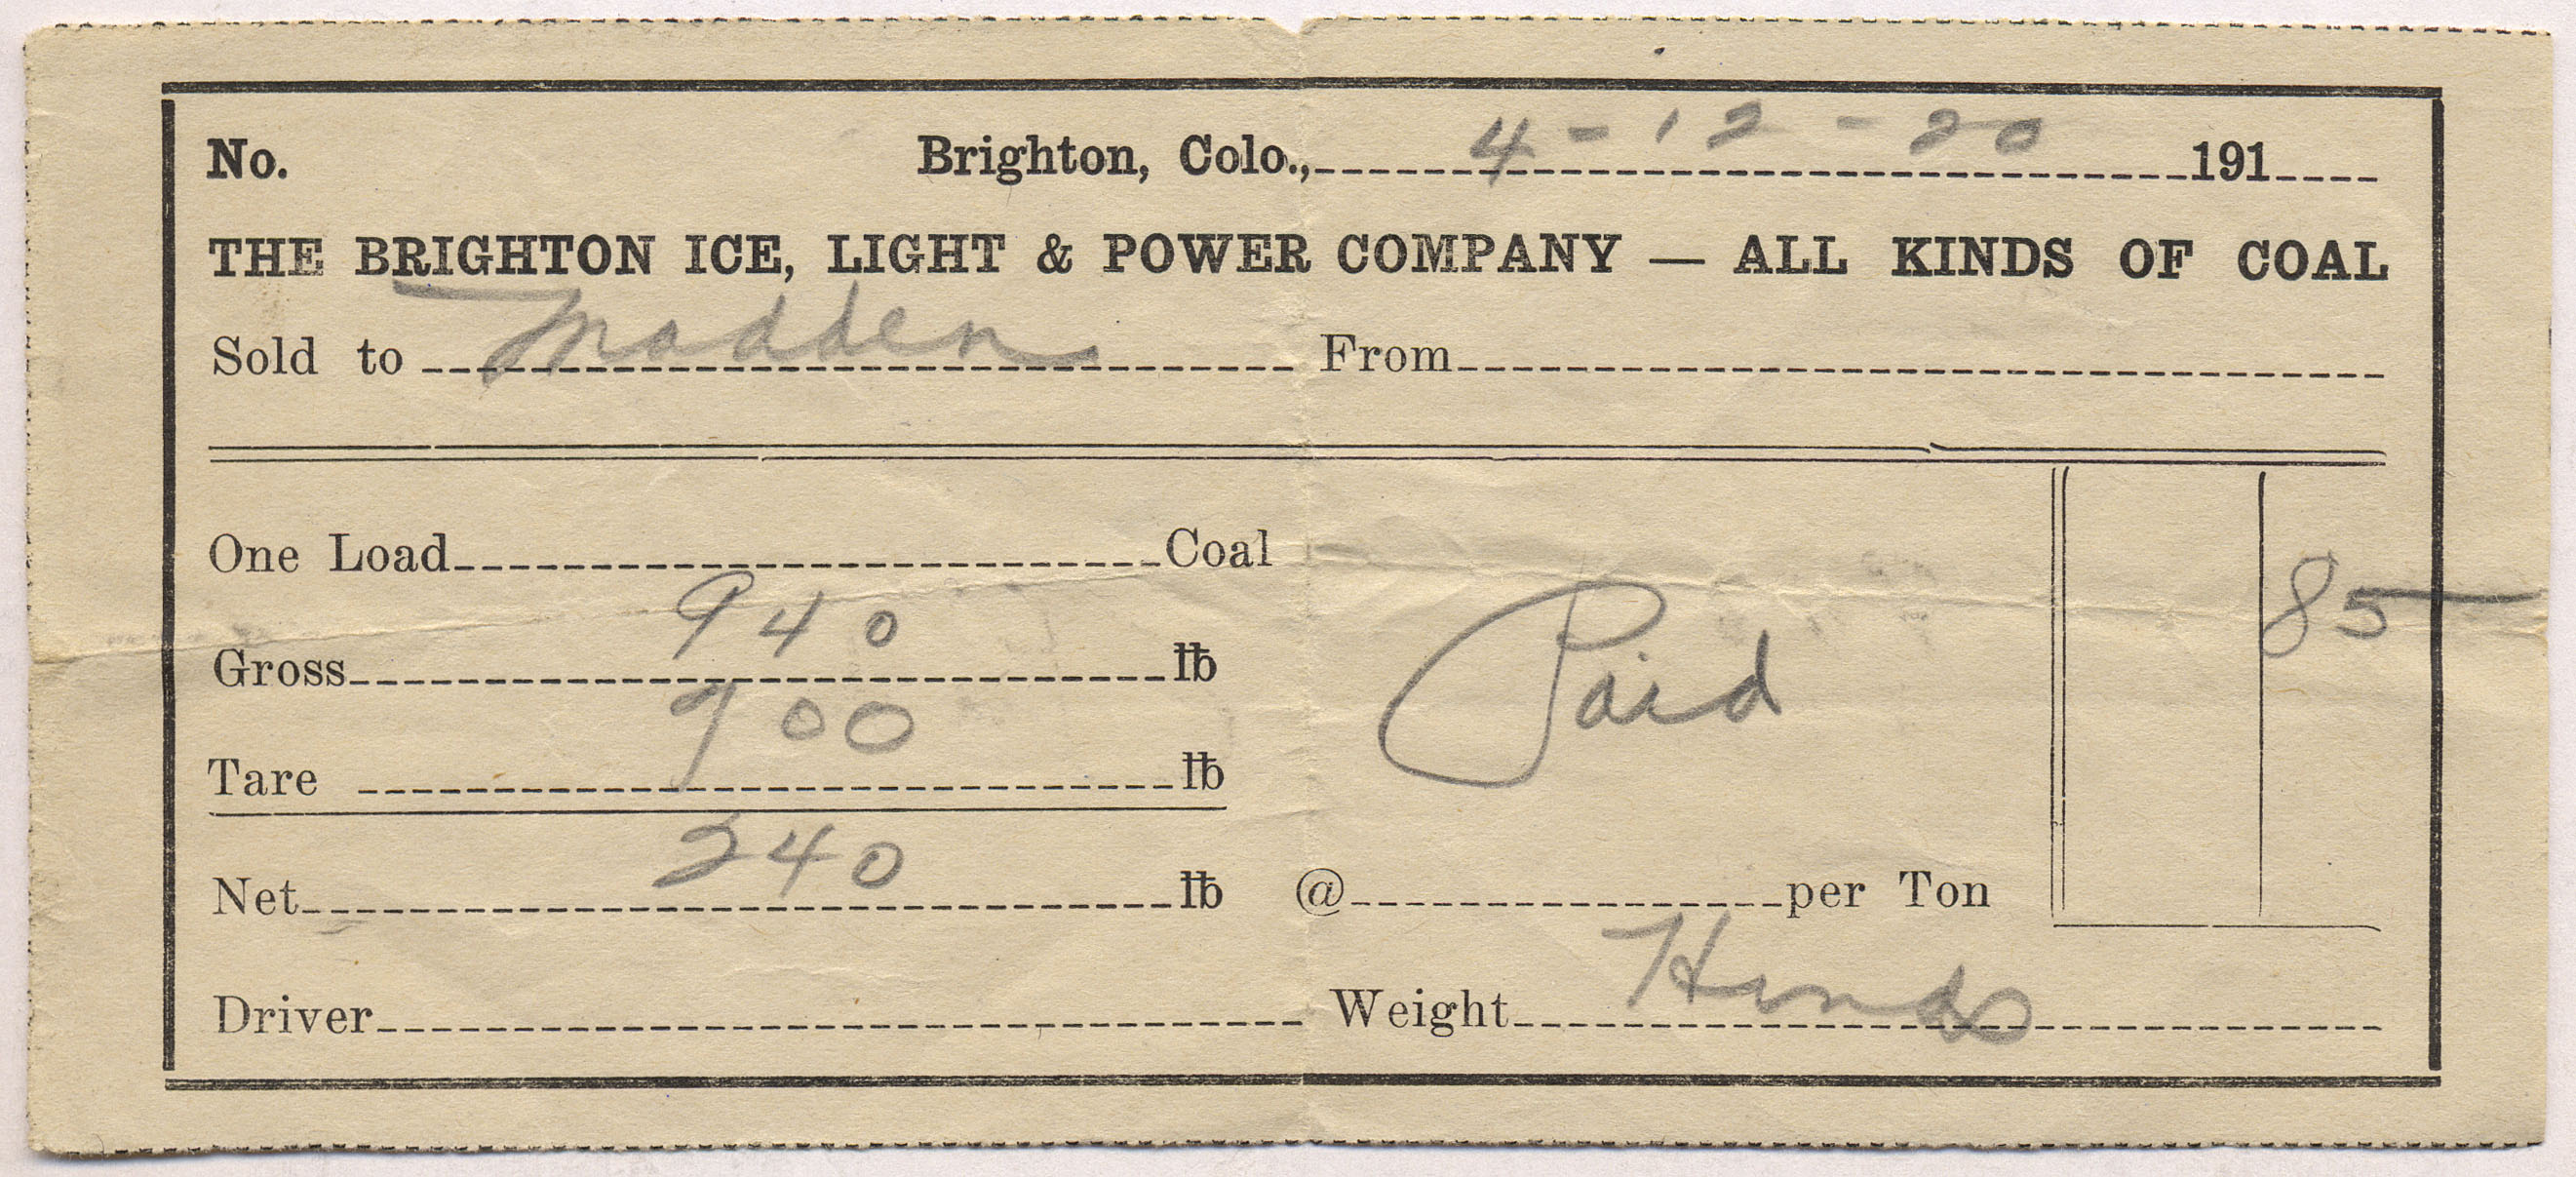 No. Brighton, Colo., 4-12-20 191
THE BRIGHTON ICE, LIGHT & POWER COMPANY — ALL KINDS OF COAL
Sold to Madden From
One Load Coal
85
Gross 940 lb
Paid
Tare 700 lb
Net 240 lb @ per Ton
Driver Weight